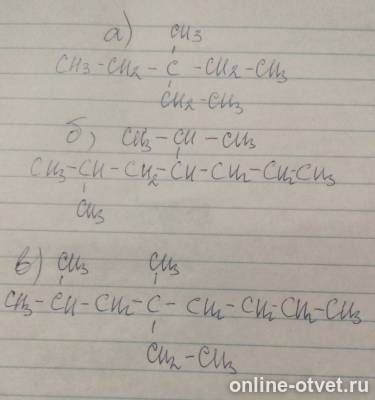 а) CH3
CH3-CH2-C-CH2-CH3
CH2-CH3
б) CH3-CH-CH3
CH3-CH-CH2-CH-CH2-CH2-CH3
CH3
в) CH3 CH3
CH3-CH-CH2-C-CH2-CH2-CH2-CH3
CH2-CH3
online-otvet.ru